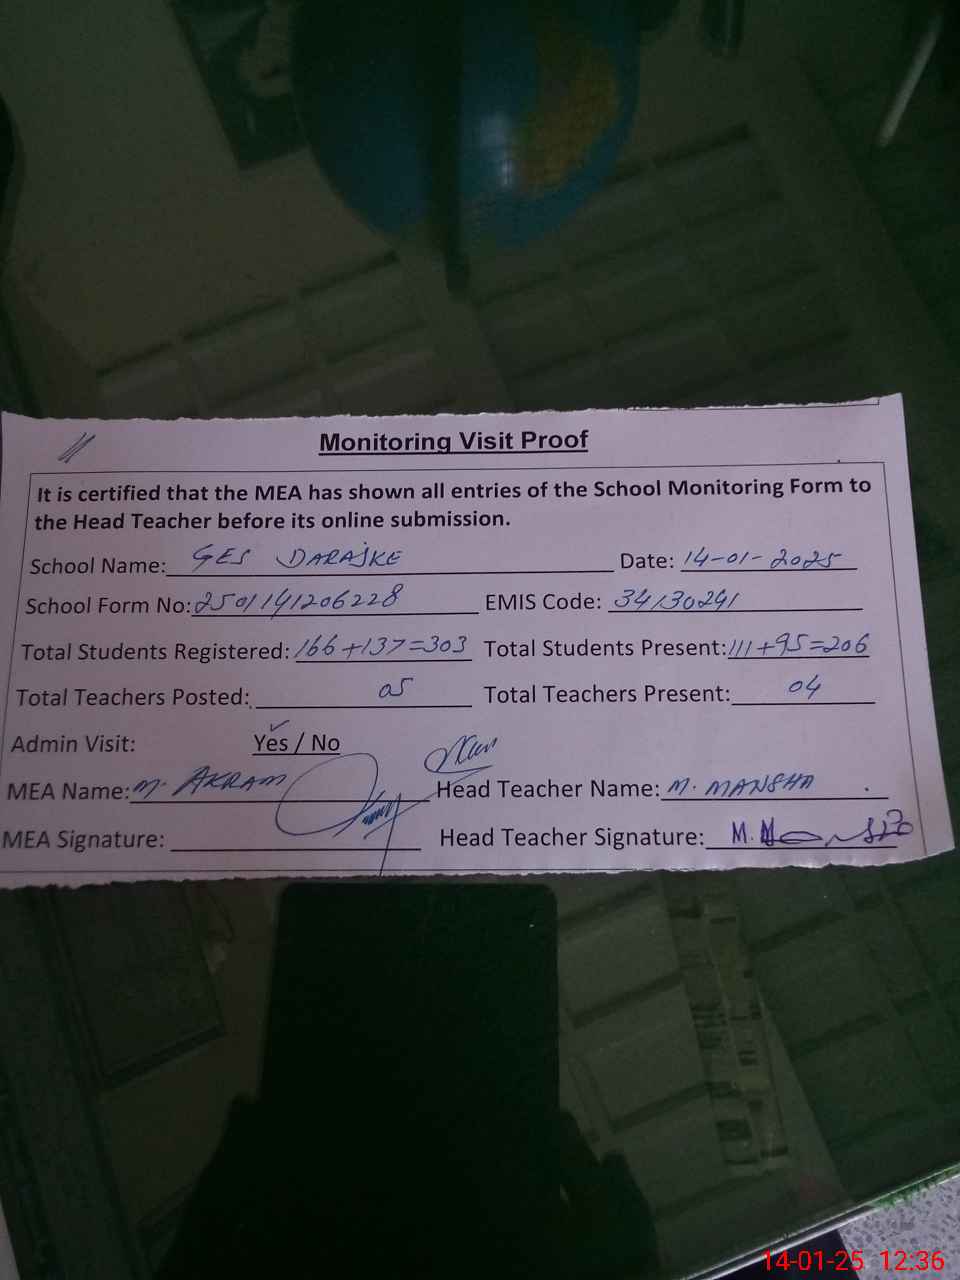 Monitoring Visit Proof
It is certified that the MEA has shown all entries of the School Monitoring Form to
the Head Teacher before its online submission.
School Name: GES DARAJKE Date: 14-01-2025
School Form No: 2501141206228 EMIS Code: 34130241
Total Students Registered: 166+137=303 Total Students Present: 111+95=206
Total Teachers Posted: 05 Total Teachers Present: 04
Admin Visit: Yes / No
MEA Name: M. AKRAM Head Teacher Name: M. MANSHA
MEA Signature: Head Teacher Signature: M.
14-01-25 12:36